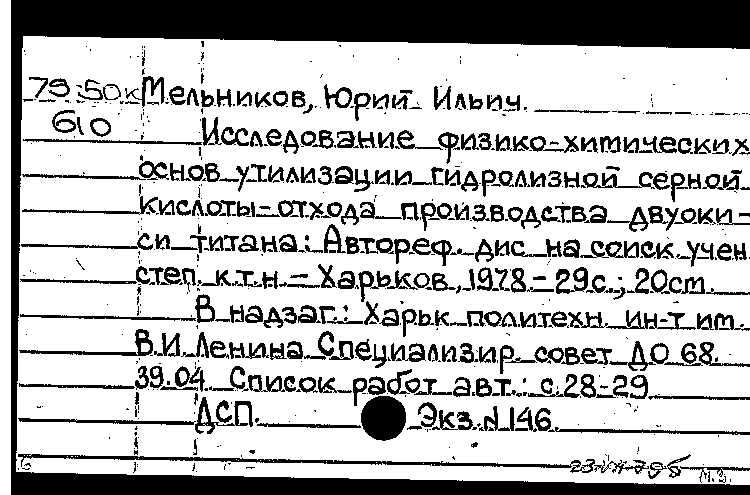 79:50к Мельников, Юрий Ильич.
610 Исследование физико-химических
основ утилизации гидролизной серной
кислоты-отхода производства двуоки-
си титана: Автореф. дис. на соиск. учен.
степ. к.т.н. – Харьков, 1978 – 29с.; 20см.
В надзаг.: Харьк. политехн. ин-т им.
В.И. Ленина. Специализир. совет ДО 68.
39.04. Список работ авт.: с.28-29
ДСП. Экз. № 146.